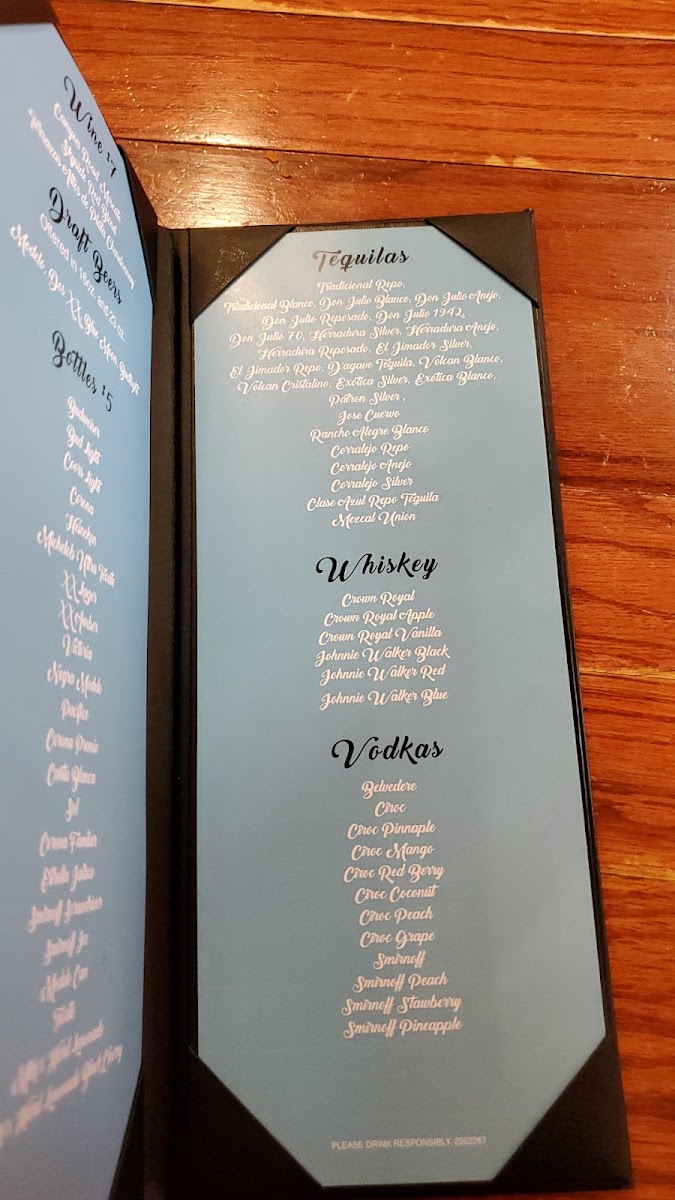 Wine $7
Draft Beers
Offered in 16oz. and 23 oz.
Modelo, Dos XX, Blue Moon, Budlight
Bottles $5
Budweiser
Bud Light
Coors Light
Corona
XX Lager
XX Amber
Victoria
Negra Modelo
Pacifico
Carta Blanca
Sol
Corona Familiar
Modelo Can
Tecate
Tequilas
Tradicional Repo,
Tradicional Blanco, Don Julio Blanco, Don Julio Anejo,
Don Julio Reposado, Don Julio 1942,
Don Julio 70, Herradura Silver, Herradura Anejo,
Herradura Reposado, El Jimador Silver,
El Jimador Repo, D'agave Tequila, Volcan Blanco,
Volcan Cristalino, Exotica Silver, Exotica Blanco,
Patron Silver ,
Jose Cuervo
Rancho Alegre Blanco
Corralejo Repo
Corralejo Anejo
Corralejo Silver
Clase Azul Repo Tequila
Mezcal Union
Whiskey
Crown Royal
Crown Royal Apple
Crown Royal Vanilla
Johnnie Walker Black
Johnnie Walker Red
Johnnie Walker Blue
Vodkas
Belvedere
Ciroc
Ciroc Pinnaple
Ciroc Mango
Ciroc Red Berry
Ciroc Coconut
Ciroc Peach
Ciroc Grape
Smirnoff
Smirnoff Peach
Smirnoff Stawberry
Smirnoff Pineapple
PLEASE DRINK RESPONSIBLY. 2562287